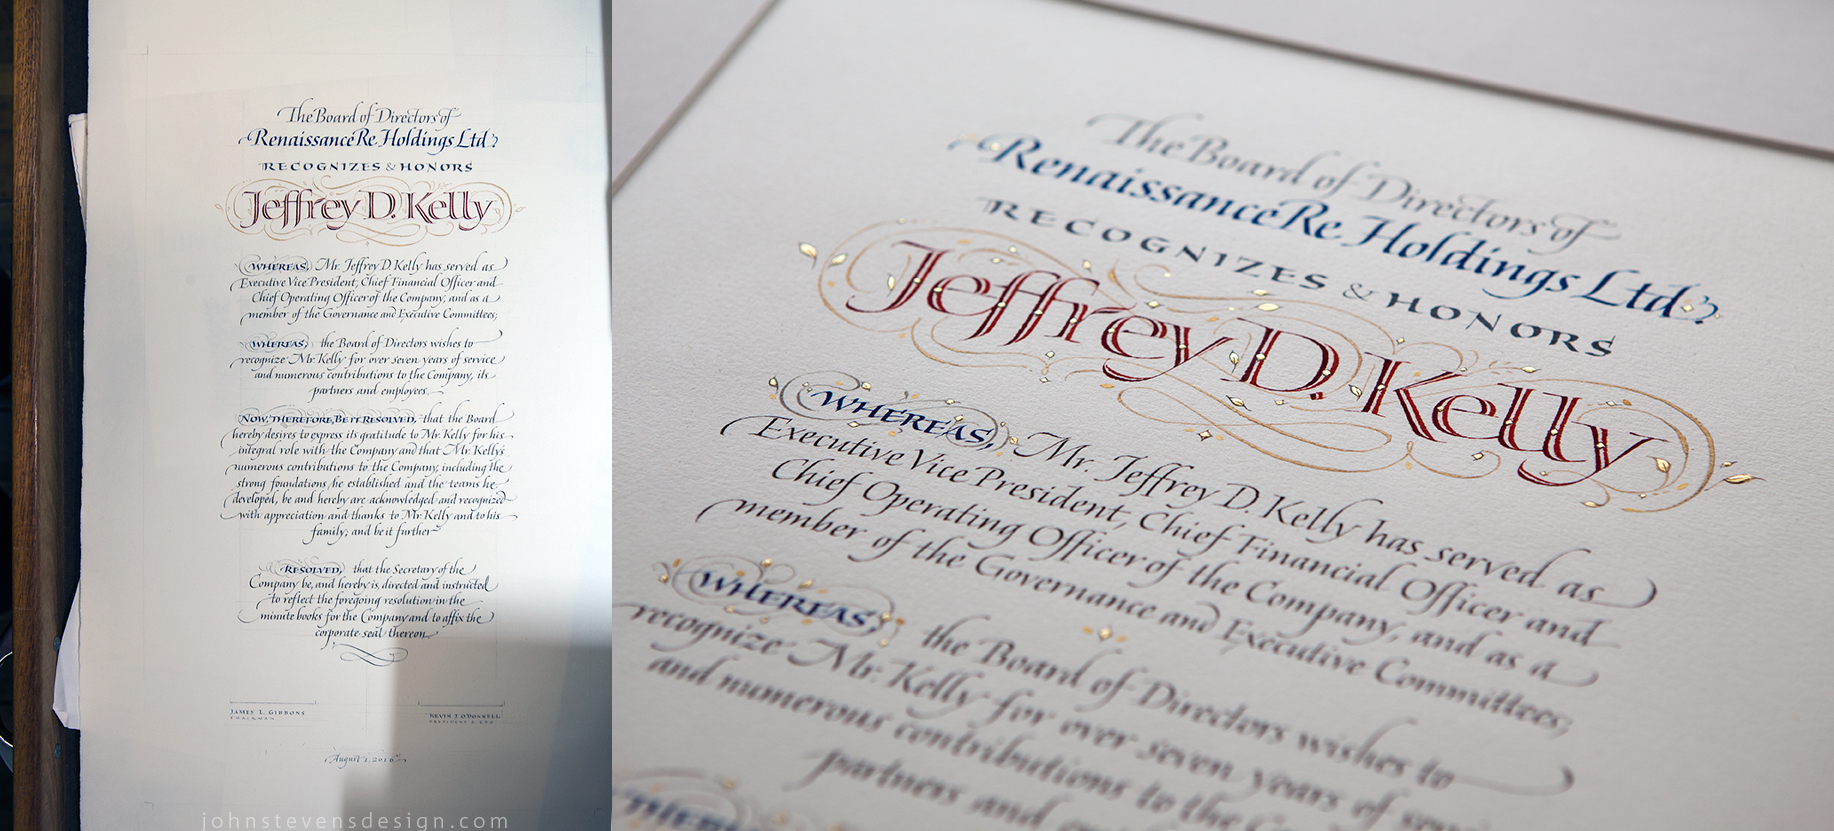 The Board of Directors of
RenaissanceRe Holdings Ltd.
RECOGNIZES & HONORS
Jeffrey D. Kelly
WHEREAS, Mr. Jeffrey D. Kelly has served as
Executive Vice President, Chief Financial Officer and
Chief Operating Officer of the Company, and as a
member of the Governance and Executive Committees;
WHEREAS, the Board of Directors wishes to
recognize Mr. Kelly for over seven years of service
and numerous contributions to the Company, its
partners and employees.
NOW, THEREFORE, BE IT RESOLVED, that the Board
hereby desires to express its gratitude to Mr. Kelly for his
integral role with the Company and that Mr. Kelly's
numerous contributions to the Company, including the
strong foundations he established and the teams he
developed, be and hereby are acknowledged and recognized
with appreciation and thanks to Mr. Kelly and to his
family; and be it further
RESOLVED, that the Secretary of the
Company be, and hereby is, directed and instructed
to reflect the foregoing resolution in the
minute books for the Company and to affix the
corporate seal thereon.
JAMES L. GIBBONS
CHAIRMAN
KEVIN J. O'DONNELL
PRESIDENT & CEO
August 1, 2016
johnstevensdesign.com
The Board of Directors of
RenaissanceRe Holdings Ltd.
RECOGNIZES & HONORS
Jeffrey D. Kelly
WHEREAS, Mr. Jeffrey D. Kelly has served as
Executive Vice President, Chief Financial Officer and
Chief Operating Officer of the Company, and as a
member of the Governance and Executive Committees;
WHEREAS, the Board of Directors wishes to
recognize Mr. Kelly for over seven years of
and numerous contributions to the
partners and